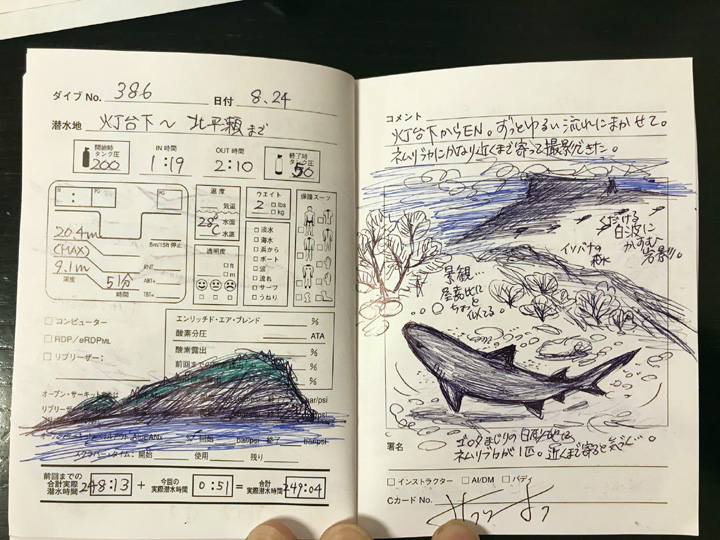 ダイブ No. 386 日付 8.24
潜水地 灯台下〜北平瀬まで
開始時タンク圧 200
IN 時間 1:19
OUT 時間 2:10
終了時タンク圧 50
SI PG PG
20.4m
(MAX)
9.1m
深度
51分
時間
5m/15ft 停止
RNT
ABT+
TBT=
温度
気温
28℃ 水面
水温
透明度
ft
m
ウエイト
2 lbs
kg
淡水
海水
浜から
ボート
波
流れ
サーフ
うねり
保護スーツ
コンピューター
RDP/eRDPML
リブリーザー:
エンリッチド・エア・ブレンド %
酸素分圧 ATA
酸素露出 %
前回まで %
%
オープン・サーキット bar/psi
リブリーザー bar/psi
開始 bar/psi 終了 bar/psi
スクラバー・タイム:開始 使用 残り
前回までの合計実際潜水時間 248:13 + 今回の実際潜水時間 0:51 = 合計実際潜水時間 249:04
コメント
灯台下からEN。ずっとゆるい流れにまかせて。
ネムリブカにかなり近くまで寄って撮影できた。
くだける
白波に
かすむ
岩影!!
イソバナの
林
景観…
屋久比に
ちょっと
似てる。
ゴロタまじりの白砂地で、
ネムリブカが1匹。近くまで寄ると気づいて。
署名
インストラクター AI/DM バディ
Cカード No.